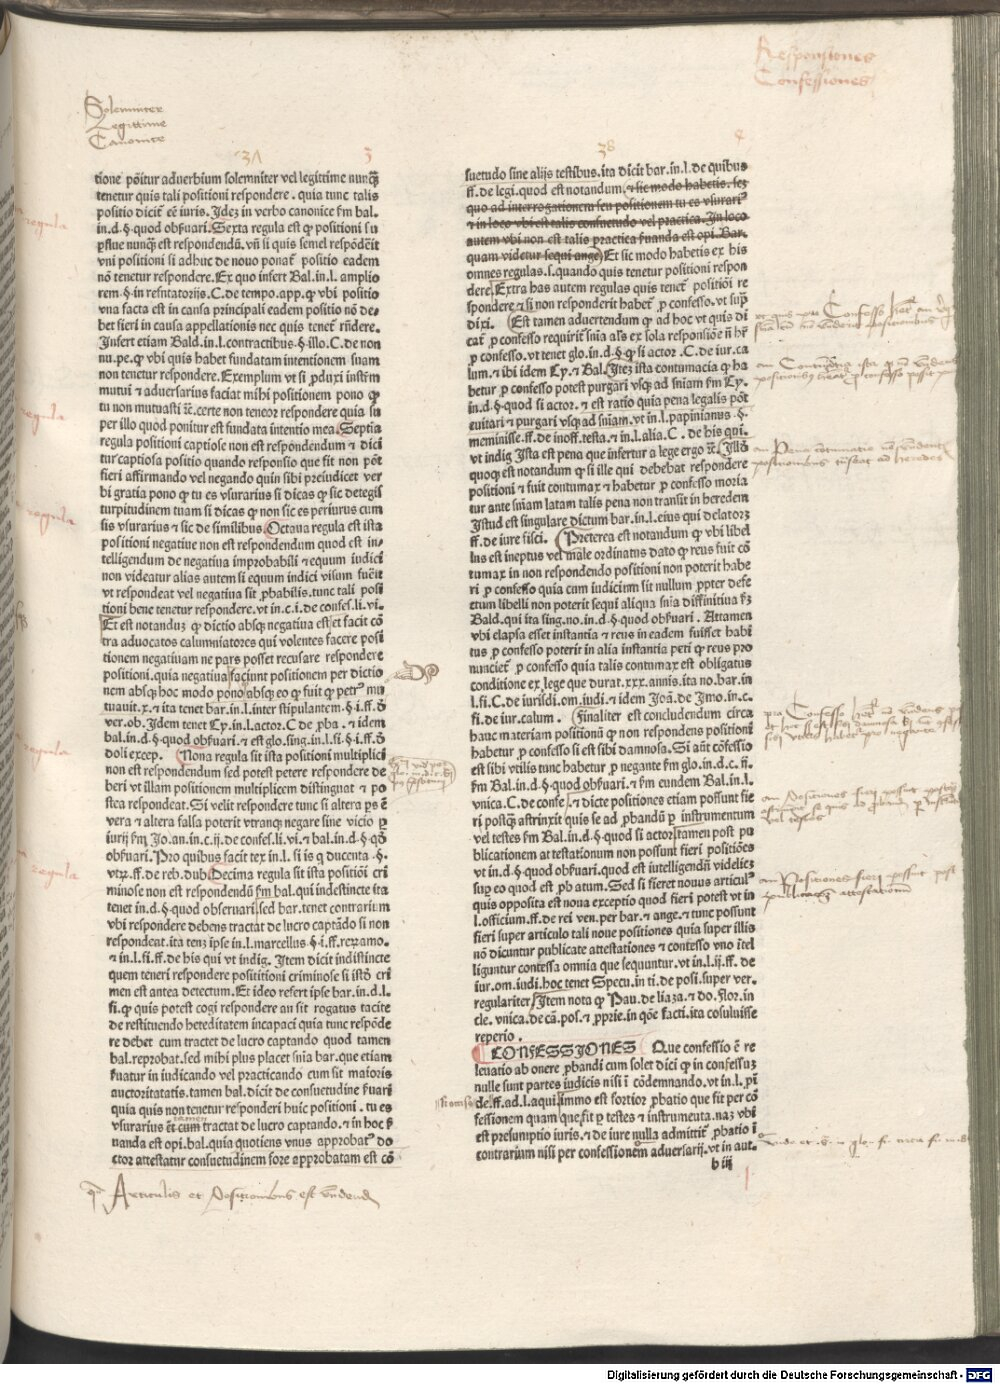 Responsiones
Confessiones
Solemniter
Legittime
Canonice
37 3
38 4
tione põitur aduerbium solemniter vel legittime nunqʒ
tenetur quis tali positioni respondere . quia tunc talis
positio dicit᷑ eẽ iuris. Jdeʒ in verbo canonice ẜm bal.
in.d.§.quod obẜuari. Sexta regula est ꝙ positioni su
ꝑflue nunqʒ est respondendũ. vñ si quis semel respõdẽit
vni positioni si adhuc de nouo ponat᷑ positio eadem
nõ tenetur respondere. Ex quo infert Bal.in.l. amplio
rem.§.in refutatorijs. C. de tempo.app.ꝙ vbi positio
vna facta est in causa principali eadem positio nõ de⸗
bet fieri in causa appellationis nec quis tenet᷑ rñdere.
Jnfert etiam Bald.in.l.contractibus.§.illo. C. de non
nu.pe.ꝙ vbi quis habet fundatam intentionem suam
non tenetur respondere. Exemplum vt si ꝓduxi instr̃m
mutui ⁊ aduersarius faciat mihi positionem pono ꝙ
tu non mutuasti ⁊c̃.certe non teneor respondere quia su
per illo quod ponitur est fundata intentio mea. Septia
regula positioni captiose non est respondendum ⁊ dici
tur captiosa positio quando responsio que fit non põt
fieri affirmando vel negando quin sibi preiudicet ver
bi gratia pono ꝙ tu es vsurarius si dicas ꝙ sic detegis
turpitudinem tuam si dicas ꝙ non sic es periurus cum
sis vsurarius ⁊ sic de similibus. Octaua regula est ista
positioni negatiue non est respondendum quod est in⸗
telligendum de negatiua improbabili ⁊ equum iudici
non videatur alias autem si equum iudici visum fuẽit
vt respondeat vel negatiua sit ꝓbabilis.tunc tali posi
tioni bene tenetur respondere.vt in.c.i.de confes.li.vi.
Et est notanduʒ ꝙ dictio absqʒ negatiua est et facit cõ
tra aduocatos calumniatores qui volentes facere posi
tionem negatiuam ne pars posset recusare respondere
positioni.quia negatiua faciunt positionem per dictio
nem absqʒ hoc modo pono absqʒ eo ꝙ fuit ꝙ petr᷒ mu
tuauit.x.⁊ ita tenet bar.in.l.inter stipulantem.§.i.ff. ð
ver.ob. Jdem tenet Cy.in.l.actor. C. de ꝓba . ⁊ idem
bal.in.d.§.quod obẜuari.⁊ est glo.sing.in.l.fi.§.i.ff. ð
doli excep. Nona regula sit ista positioni multiplici
non est respondendum sed potest petere respondere de
beri vt illam positionem multiplicem distinguat ⁊ po
stea respondeat. Si velit respondere tunc si altera ps ẽ
vera ⁊ altera falsa poterit vtranqʒ negare sine vicio ꝑ
iurij ẜm Jo.an.in.c.ij.de confes.li.vi.⁊ bal.in.d.§.qð
obẜuari. Pro quibus facit tex in.l. si is q ducenta .§.
vtrʒ.ff. de reb. dub. Decima regula sit ista positiõi cri
minose non est respondendũ ẜm bal.qui indestincte ita
tenet in.d.§.quod obseruari.sed bar.tenet contrarium
vbi respondere debens tractat de lucro captãdo si non
respondeat.ita tenʒ ipse in.l.marcellus.§.i.ff.reʒ amo.
⁊ in.l.fi.ff.de his qui vt indig. Jtem dicit indistincte
quem teneri respondere posititioni criminose si istð cri
men est antea detectum. Et ideo refert ipse bar.in.d.l.
fi.ꝙ quis potest cogi respondere an sit rogatus tacite
de restituendo hereditatem incapaci quia tunc respõde
re debet cum tractet de lucro captando quod tamen
bal.reprobat.sed mihi plus placet snĩa bar.que etiam
ẜuatur in iudicando vel practicando cum sit maioris
auctoritatatis.tamen bal.dicit de consuetudine ẜuari
quia quis non tenetur responderi huic positioni. tu es
vsurarius ẽt cum tractat de lucro captando.⁊ in hoc ẜ
uanda est opi.bal.quia quotiens vnus approbat᷒ do
ctor attestatur consuetudinem fore approbatam est cõ
suetudo sine alijs testibus.ita dicit bar.in.l.de quibus
ff.de legi.quod est notandum.⁊ sic modo habetis. seʒ
quo ad interrogationem seu positionem tu es vsurari᷒
⁊ in loco vbi est talis consuetudo vel practica. Jn loco
autem vbi non est talis practica ẜuanda est opi. Bar.
quam videtur sequi ange. Et sic modo habetis ex his
omnes regulas.s.quando quis tenetur positioni respon
dere. Extra has autem regulas quis tenet᷑ positiõi re
spondere ⁊ si non responderit habet᷑ ꝓ confesso.vt supᷓ
dixi. Est tamen aduertendum ꝙ ad hoc vt quis di
cat᷑ ꝓ confesso requirit᷑ snĩa als ex sola responsiõe ñ hr̃
ꝓ confesso.vt tenet glo.in.d.§.ꝙ si actor . C. de iur.ca
lum.⁊ ibi idem Cy.⁊ Bal. Jteʒ ista contumacia ꝙ ha
betur ꝓ confesso potest purgari vsqʒ ad sniam ẜm Cy.
in.d.§.quod si actor.⁊ est ratio quia pena legalis põt
euitari ⁊ purgari vsqʒ ad sniam.vt in.l.papinianus .§.
meminisse.ff.de inoff.testa.⁊ in.l.alia. C . de his qui.
vt indig Jsta est pena que infertur a lege ergo ⁊c̃. Jllð
quoqʒ est notandum ꝙ si ille qui debebat respondere
positioni ⁊ fuit contumax ⁊ habetur ꝓ confesso moria
tur ante sniam latam talis pena non transit in heredem
Jstud est singulare dictum bar.in.l.eius qui delatorʒ
ff.de iure fisci. Preterea est notandum ꝙ vbi libel
lus est ineptus vel male ordinatus dato ꝙ reus fuit cõ
tumax in non respondendo positioni non poterit habe
ri ꝓ confesso quia cum iudicium sit nullum ꝓpter defe
ctum libelli non poterit sequi aliqua snia diffinitiua ẜm
Bald.qui ita sing.no.in.d.§.quod obẜuari . Attamen
vbi elapsa esset instantia ⁊ reus in eadem fuisset habi
tus ꝓ confesso poterit in alia instantia peti ꝙ reus pro
nunciet᷑ ꝓ confesso quia talis contumax est obligatus
conditione ex lege que durat.xxx.annis.ita no.bar.in
l.fi. C. de iurisdi.om.iudi.⁊ idem Joã.de Jmo.in.c.
fi.de iur.calum. Finaliter est concludendum circa
hanc materiam positionũ ꝙ non respondens positioni
habetur ꝓ confesso si est sibi damnosa. Si aũt cõfessio
est sibi vtilis tunc habetur ꝓ negante ẜm glo.in.d.c.fi.
ẜm Bal.in.d.§.quod obẜuari.⁊ ẜm eundem Bal.in.l.
vnica. C. de confe. ⁊ dicte positiones etiam possunt fie
ri postqʒ astrinxit quis se ad ꝓbandũ ꝑ instrumentum
vel testes ẜm Bal.in.d.§.quod si actor tamen post pu
blicationem attestationum non possunt fieri positiões
vt in.d.§.quod obẜuari.quod est intelligendũ videlicʒ
suꝑ eo quod est ꝓbatum. Sed si fieret nouus articul᷒
quis opposita est noua exceptio quod fieri potest vt in
l.officium.ff.de rei ven.per bar.⁊ ange.⁊ tunc possunt
fieri super articulo tali noue positiones quia super illis
nõ dicuntur publicate attestationes ⁊ contesso vno ĩtel
liguntur contessa omnia que sequuntur.vt in.l.ij.ff.de
iur.om.iudi.hoc tenet Specu.in ti.de posi.super ver.
regulariter. Jtem nota ꝙ Pau.de liaʒa.⁊ do.flor.in
cle.vnica.de cã.pos.⁊ ꝓprie.in qõe facti.ita cõsuluisse
reperio .
CONFESSIONES Que confessio ẽ re
leuatio ab onere ꝓbandi cum solet dici ꝙ in confessuʒ
nulle sunt partes iudicis nisi ĩ cõdemnando.vt in.l.pĩ
de.ff.ad.l.aqui.immo est fortior ꝓbatio que fit per cõ
fessionem quam que fit ꝑ testes ⁊ instrumenta.naʒ vbi
est presumptio iuris.⁊ de iure nulla admittit᷑ ꝓbatio ĩ
contrarium nisi per confessionem aduersarij.vt in aut.
b iij
regula
regula
regula
regula
regula
Articulis et Positionibus est
Digitalisierung gefördert durch die Deutsche Forschungsgemeinschaft - DFG